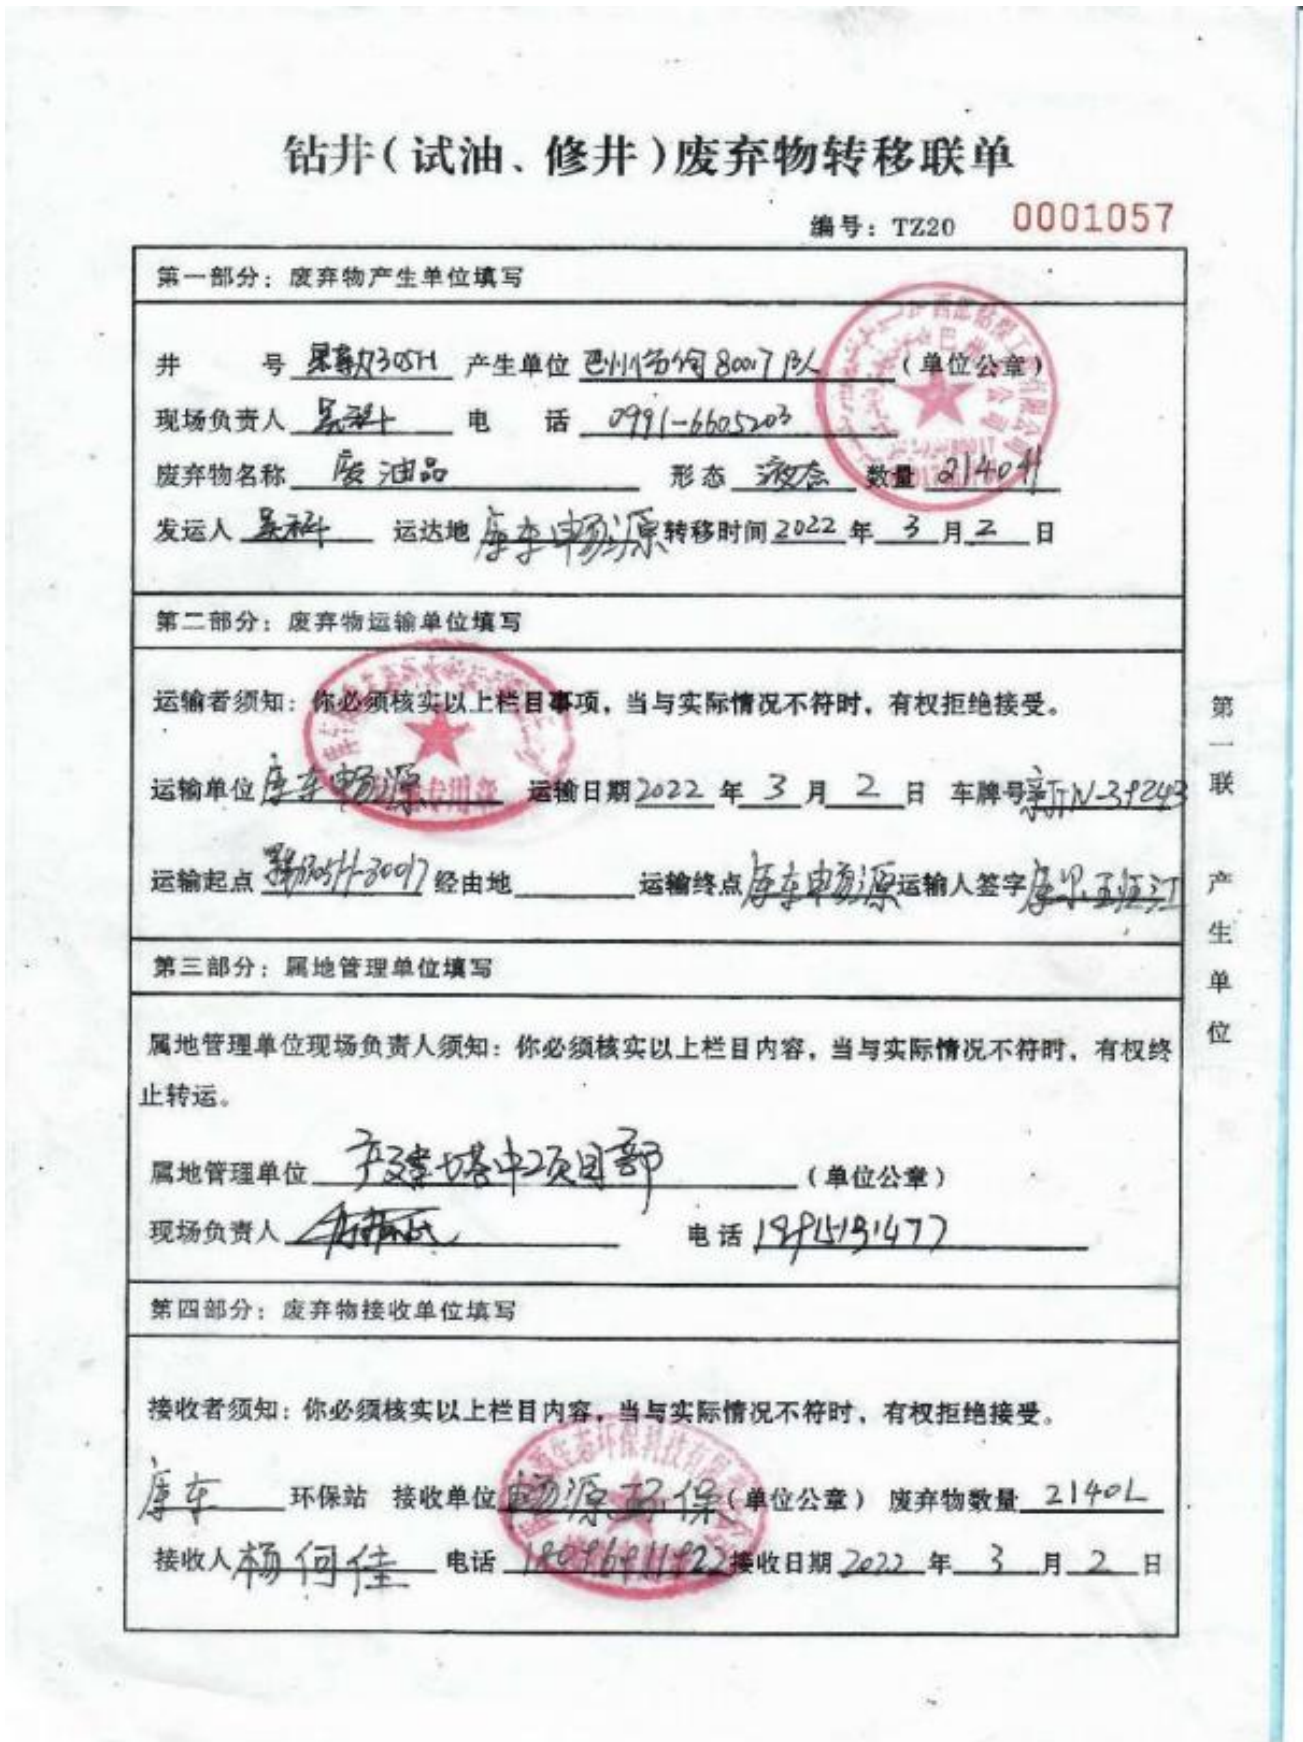 钻井(试油、修井)废弃物转移联单
编号: TZ20 0001057
第一部分: 废弃物产生单位填写
井 号 305H 产生单位 80017队 (单位公章)
现场负责人 电 话 0991-6605203
废弃物名称 废油品 形态 液态 数量 2140升
发运人 运达地 库车畅源 转移时间 2022 年 3 月 2 日
第二部分: 废弃物运输单位填写
运输者须知: 你必须核实以上栏目事项, 当与实际情况不符时, 有权拒绝接受。
运输单位 库车畅源 运输日期 2022 年 3 月 2 日 车牌号 新N-39243
运输起点 经由地 运输终点 库车畅源 运输人签字
第三部分: 属地管理单位填写
属地管理单位现场负责人须知: 你必须核实以上栏目内容, 当与实际情况不符时, 有权终
止转运。
属地管理单位 产建塔中项目部 (单位公章)
现场负责人 电话
第四部分: 废弃物接收单位填写
接收者须知: 你必须核实以上栏目内容, 当与实际情况不符时, 有权拒绝接受。
库车 环保站 接收单位 畅源环保 (单位公章) 废弃物数量 2140L
接收人 杨何佳 电话 接收日期 2022 年 3 月 2 日
第一联 产生单位